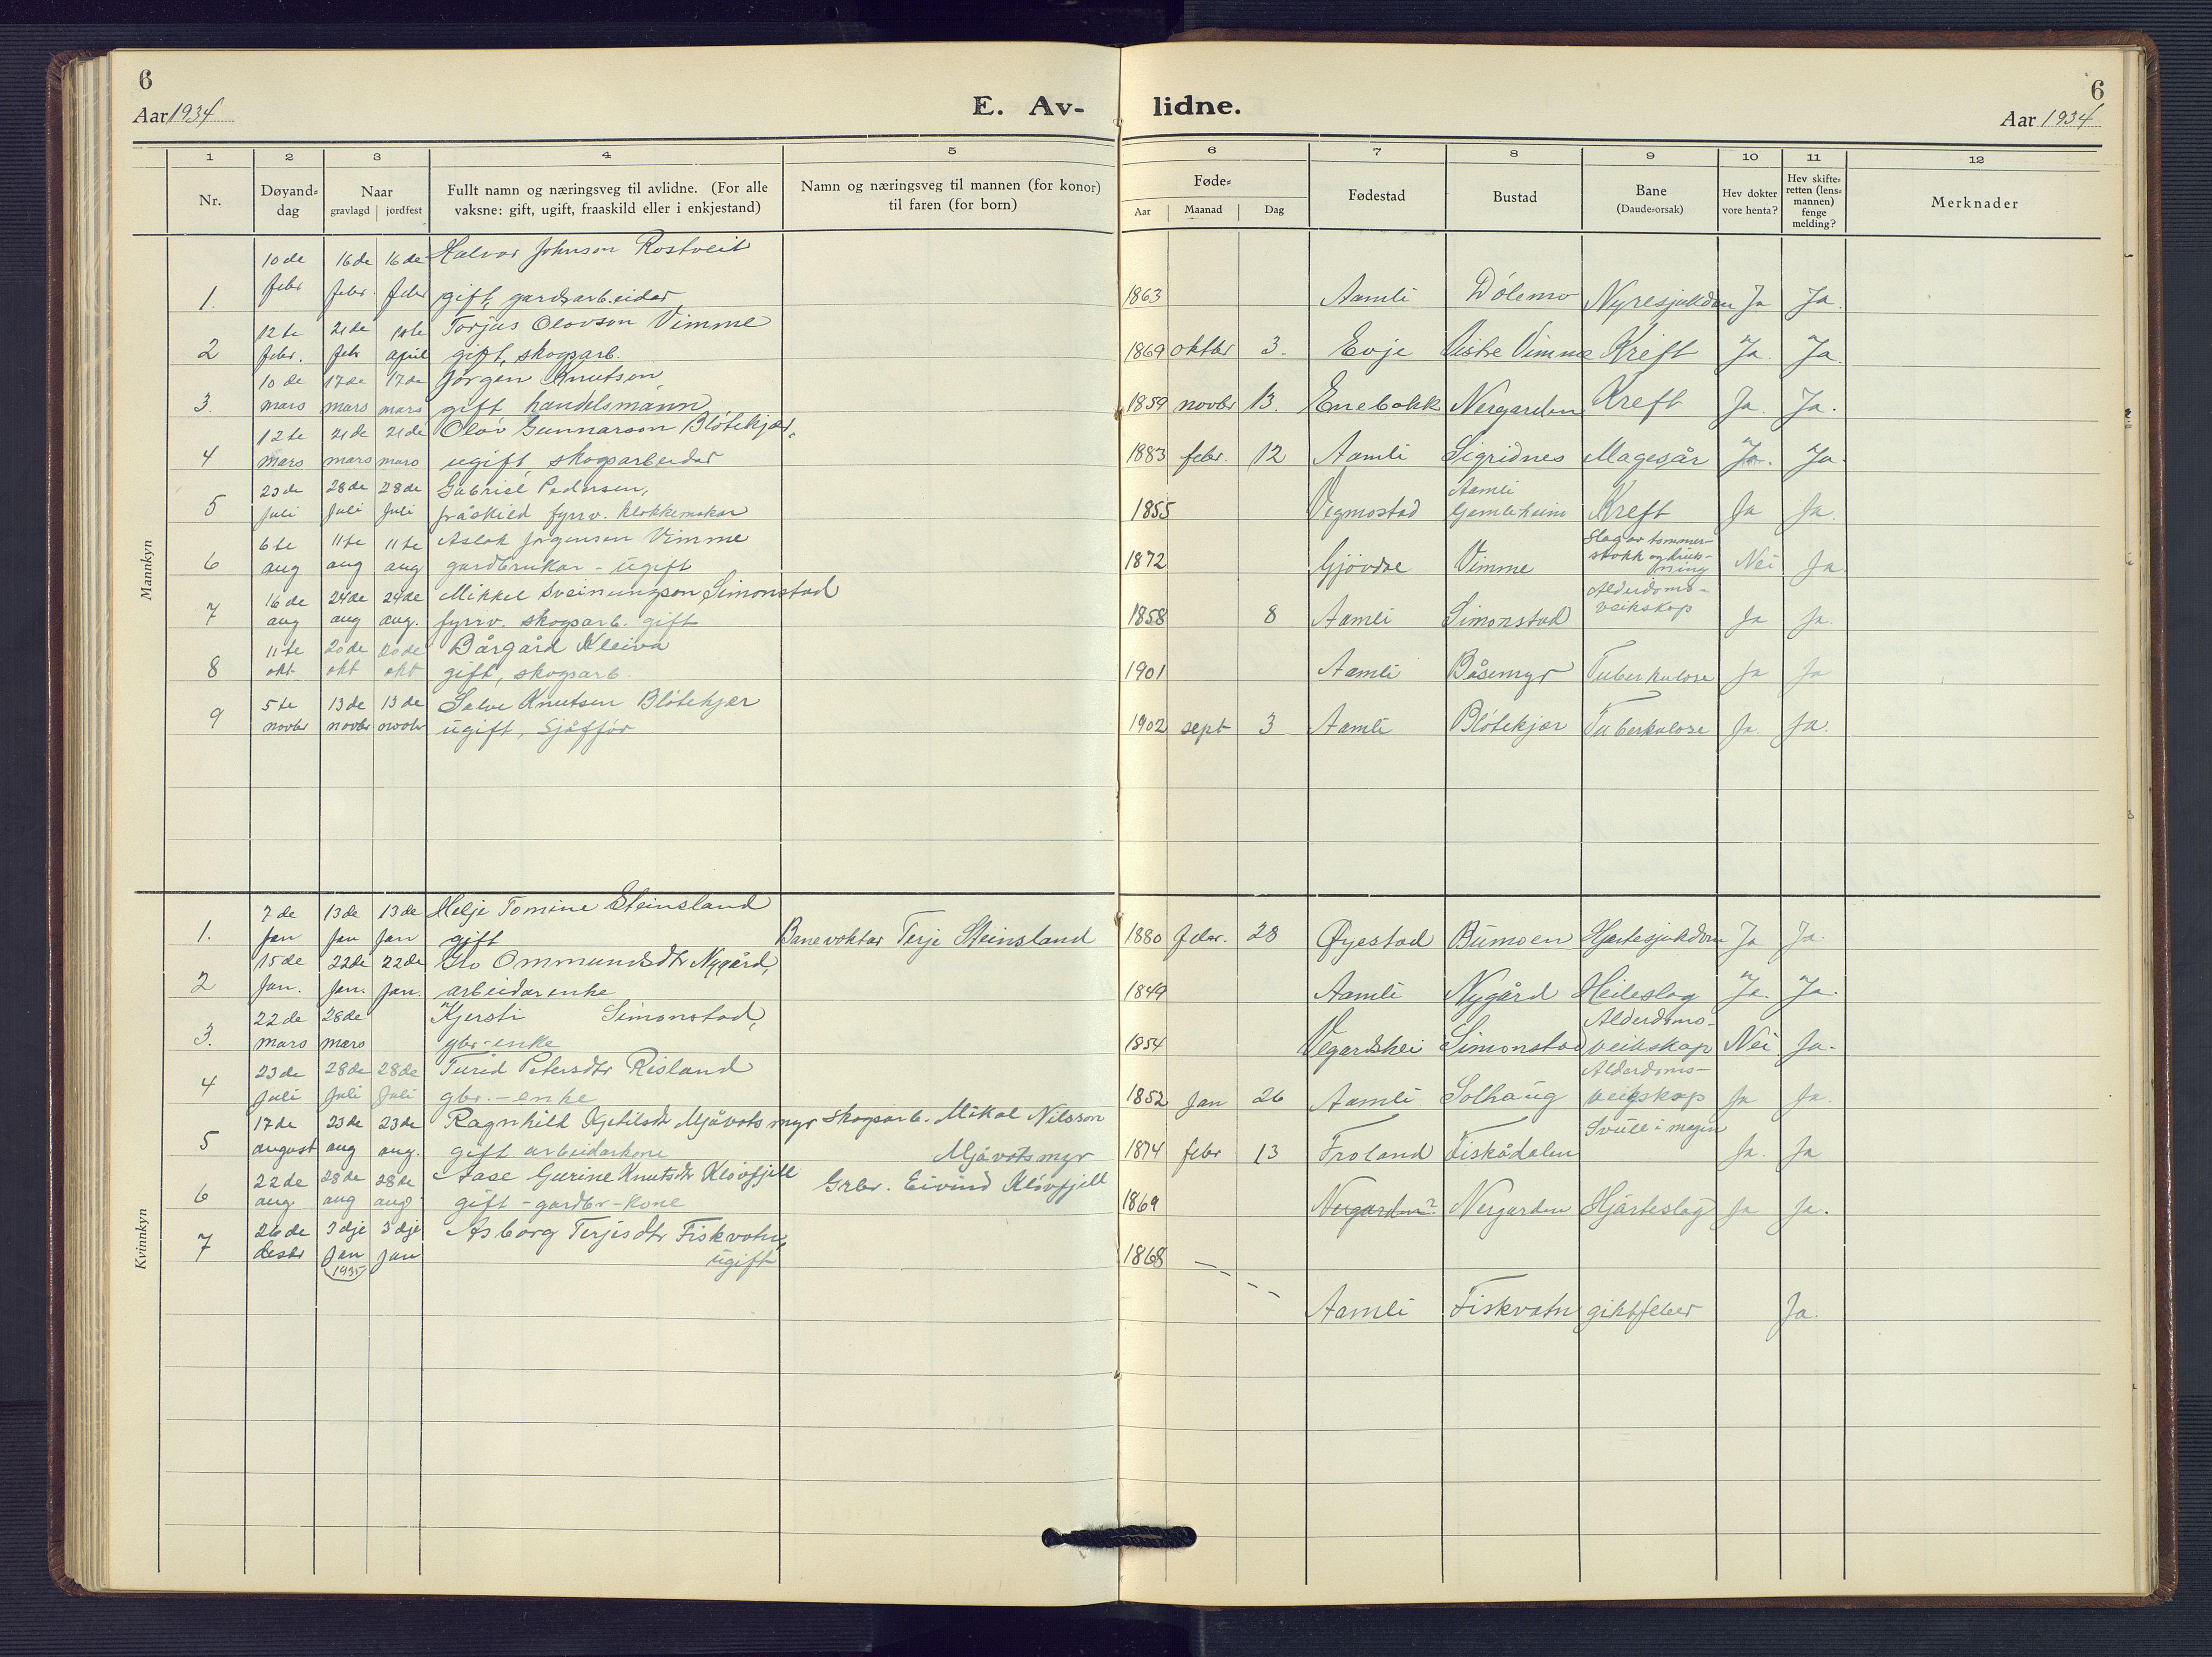 6
Aar 1934
E. Av-
lidne.
6
Aar 1934
1 2 3 4 5 6 7 8 9 10 11 12
Nr.
Døyand-dag
Naar
gravlagd | jordfest
Fullt namn og næringsveg til avlidne. (For alle
vaksne: gift, ugift, fraaskild eller i enkjestand)
Namn og næringsveg til mannen (for konor)
til faren (for born)
Føde-
Aar Maanad Dag
Fødestad
Bustad
Bane
(Daude-orsak)
Hev dokter
vore henta?
Hev skifte-
retten (lens-
mannen)
fenge
melding?
Merknader
Mannkyn
10de 16de 16de Halvor Johnson Rostveit
1. febr febr. febr gift, gardsarbeidar 1863 Aamli Dölemo Nyresjukdom Ja Ja.
12te 21de 10te Torjus Olovson Vimme
2 febr. febr april gift, skogsarb. 1869 oktbr 3. Evje Vistre Vimme Kreft Ja. Ja.
10de 17de 17de Jörgen Knutson,
3. mars mars mars gift handelsmann 1859 novbr 13. Enebakk Nergarden Kreft Ja. Ja.
12te 21de 21de Olav Gunnarson Blötekjær,
4 mars mars mars ugift, skogsarbeidar 1883 febr. 12 Aamli Sigridnes Magesår Ja. Ja.
23de 28de 28de Gabriel Pedersen, Aamli
5 juli juli juli fråskild fyrrv. klokkemakar 1855 Vegmostad Gamleheim Kreft Ja Ja.
6te 11te 11te Aslak Jørgensen Vimme Slag av tommer-
stokk og
6 aug aug aug gardbrukar - ugift 1872 Gjövdre Vimme Nei Ja.
16de 24de 24de Mikkel Sveinungson Simonstad Alderdoms-
7 aug aug aug. fyrrv. skogsarb. gift 1858 8 Aamli Simonstad veikskap Ja Ja.
11te 20de 20de Bårgård Kleiva
8 okt okt okt gift, skogsarb. 1901 Aamli Båsemyr Tuberkulose Ja Ja
5te 13de 13de Salve Knutsen Blötekjær
9 novbr novbr novbr ugift, Sjåffør 1902 sept 3 Aamli Blötekjær Tuberkulose Ja. Ja.
Kvinnkyn
7de 13de 13de Helje Tomine Steinsland
1. Jan Jan Jan gift Banevoktar Terje Steinsland 1880 febr. 28 Øyestad Bumoen Hjertesjukdom Ja Ja.
15de 22de 22de Gro Ommundsdtr Nygård,
2 Jan. Jan. Jan. arbeidarenke 1849 Aamli Nygård Heileslag Ja. Ja.
22de 28de Kjersti Simonstad, Alderdoms-
3. mars mars gbr-enke 1854 Vegardshei Simonstad veikskap Nei Ja.
23de 28de 28de Turid Petersdtr Risland Alderdoms-
4 Juli Juli Juli gbr.-enke 1852 Jan 26 Aamli Solhaug veikskap Ja Ja.
17de 23de 23de Ragnhild Kjetilsdtr Mjåvotsmyr skogsarb. Mikal Nilsson Svull i magen
5 august aug aug. gift arbeidarkone Mjåvotsmyr 1874 febr 13 Froland Fiskådalen Ja. Ja
22de 28de 28de Aase Gurine Knutsdtr Klövfjell Grbr. Eivind Klövfjell
6 aug aug aug gift - gardbr-kone 1869 Nergarden? Nergarden Hjärteslag Ja Ja.
26de 3dje 3dje Asborg Terjesdtr Fiskvatn,
7 desbr Jan Jan ugift 1868
(1935)
Aamli Fiskvatn giktfeber Ja.